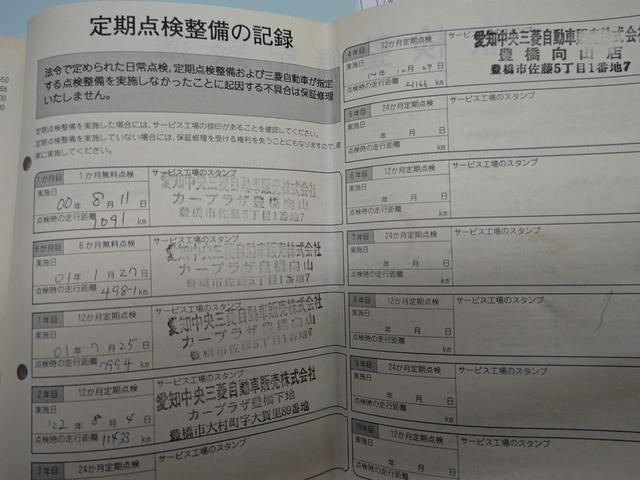 定期点検整備の記録
法令で定められた日常点検、定期点検整備および三菱自動車が指定
する点検整備を実施しなかったことに起因する不具合は保証修理
いたしません。
定期点検整備を実施した場合には、サービス工場の捺印があることを確認してください。
定期点検整備を実施していない場合には、保証修理を受ける権利を失うことにもなりますので、
実に実施してください。
1か月目 1か月無料点検 サービス工場のスタンプ
実施日
00年 8月 11日
点検時の走行距離 1091 km
愛知中央三菱自動車販売株式会社
カープラザ豊橋向山
豊橋市佐藤5丁目1番地7
6か月目 6か月無料点検 サービス工場のスタンプ
実施日
01年 1月 27日
点検時の走行距離 4981 km
愛知中央三菱自動車販売株式会社
カープラザ豊橋向山
豊橋市佐藤5丁目1番地7
1年目 12か月定期点検 サービス工場のスタンプ
実施日
01年 7月 25日
点検時の走行距離 7994 km
愛知中央三菱自動車販売株式会社
カープラザ豊橋向山
豊橋市佐藤5丁目1番地7
2年目 12か月定期点検 サービス工場のスタンプ
実施日
'02年 8月 4日
点検時の走行距離 11433 km
愛知中央三菱自動車販売株式会社
カープラザ豊橋下地
豊橋市大村町字大賀里89番地
3年目 24か月定期点検 サービス工場のスタンプ
4年目 12か月定期点検 サービス
実施日
04年 12月 27日
点検時の走行距離 21166 km
愛知中央三菱自動車販売株式会社
豊橋向山店
豊橋市佐藤5丁目1番地7
5年目 24か月定期点検 サービス工場のスタンプ
実施日
年 月 日
点検時の走行距離 km
6年目 12か月定期点検 サービス工場のスタンプ
実施日
年 月 日
点検時の走行距離 km
7年目 24か月定期点検 サービス工場のスタンプ
実施日
年 月 日
点検時の走行距離 km
8年目 12か月定期点検 サービス工場のスタンプ
実施日
年 月 日
点検時の走行距離 km
9年目 24か月定期点検 サービス工場のスタンプ
実施日
年 月 日
点検時の走行距離 km
10年目 12か月定期点検 サービス工場のスタンプ
実施日
年 月 日
点検時の走行距離 km